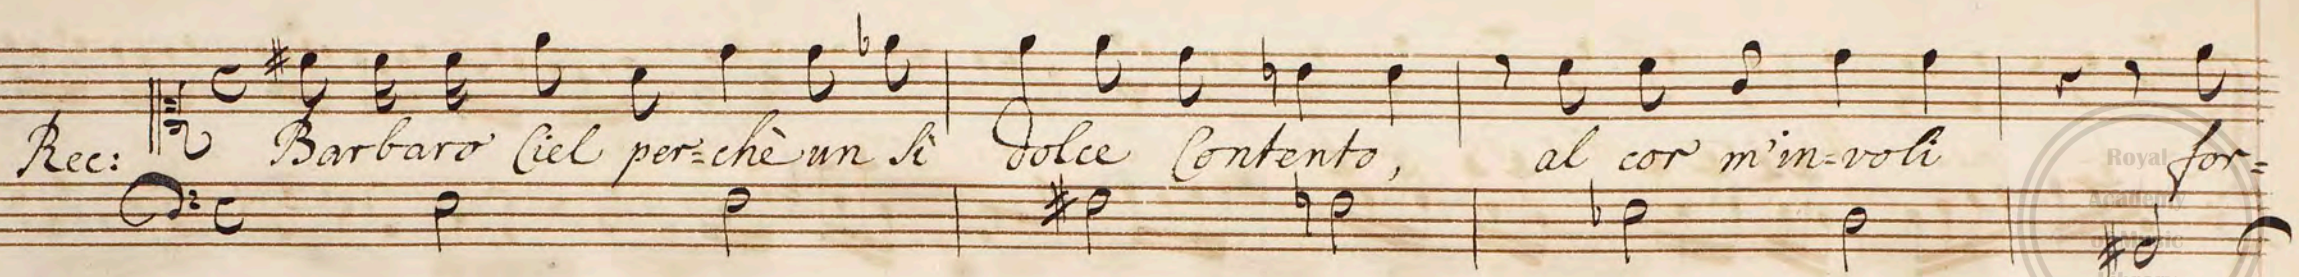 Rec: Barbaro Ciel per=chè un si dolce Contento, al cor m'in=voli for=
Royal
Academy
of Music